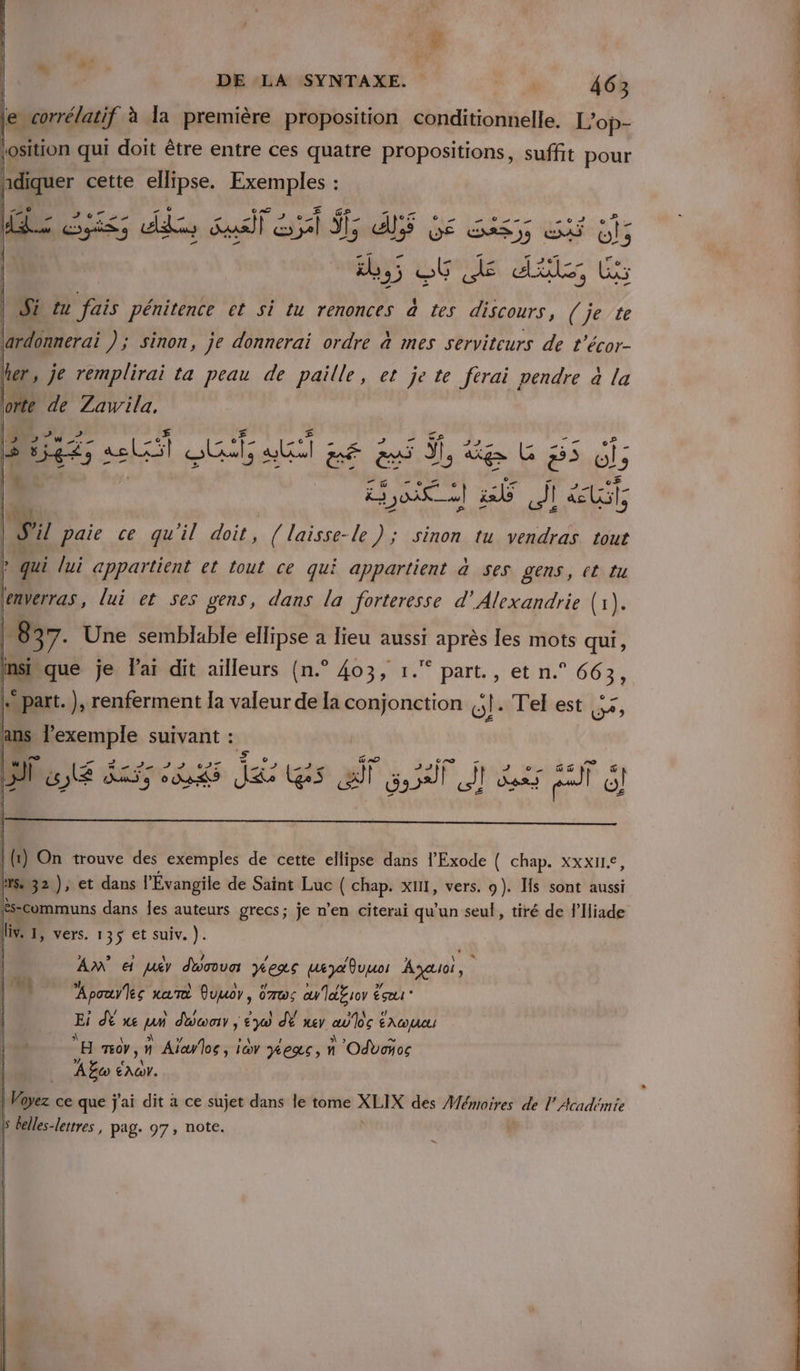 DE LA SYNTAXE. 463
e corrélatif à la première proposition conditionnelle. L'op-
osition qui doit être entre ces quatre propositions, suffit pour
ndiquer cette ellipse. Exemples :
وَإِنْ تُبْتَ وَرَجَعْتَ عَنْ قَوْلِكَ وَإِلَّا أَمَرْتُ آلْعَبِيدَ
تِبْنًا وَصَلَبْتُكَ عَلَى بَابِ زَوِيلَةَ
Si tu fais pénitence et si tu renonces à tes discours, (je te
ardonnerai ); sinon, je donnerai ordre à mes serviteurs de t'écor-
her, je remplirai ta peau de paille, et je te ferai pendre à la
orte de Zawila.
وَإِنْ دَفَعَ مَا
وَأَتْبَاعَهُ إِلَى قَلْعَةِ
S'il paie ce qu'il doit, ( laisse-le ); sinon tu vendras tout
qui lui appartient et tout ce qui appartient à ses gens, et tu
enverras, lui et ses gens, dans la forteresse d'Alexandrie (1).
837. Une semblable ellipse a lieu aussi après les mots qui,
insi que je l'ai dit ailleurs (n.° 403, 1.re part., et n.° 663,
part. ), renferment la valeur de la conjonction إِنْ. Tel est مَنْ,
ans l'exemple suivant :
(1) On trouve des exemples de cette ellipse dans l'Exode ( chap. XXXII.e,
ers. 32 ), et dans l'Évangile de Saint Luc ( chap. XIII, vers. 9 ). Ils sont aussi
ès-communs dans les auteurs grecs; je n'en citerai qu'un seul, tiré de l'Iliade
liv. I, vers. 135 et suiv. ).
Ἀλλ' εἰ μὲν δώσουσι γέρας μεγάθυμοι Ἀχαιοί,
Ἄρσαντες κατὰ θυμὸν, ὅπως ἀντάξιον ἔσται·
Εἰ δέ κε μὴ δώωσιν, ἐγὼ δέ κεν αὐτὸς ἕλωμαι
Ἢ τεὸν, ἢ Αἴαντος, ἰὼν γέρας, ἢ Ὀδυσῆος
Ἄξω ἑλών.
Voyez ce que j'ai dit à ce sujet dans le tome XLIX des Mémoires de l'Académie
s belles-lettres, pag. 97, note.